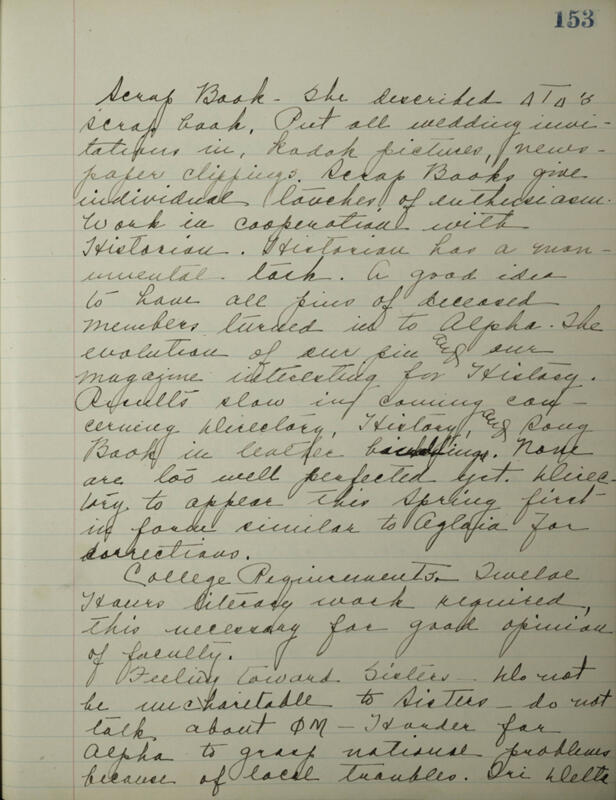 153
Scrap Book - She described Δ Γ Δ's
scrap book. Put all wedding invi-
tations in, kodak pictures, news-
paper clippings. Scrap Books give
individual touches of enthusiasm.
Work in cooperation with
Historian. Historian has a mon-
umental task. A good idea
to have all pins of deceased
members turned in to Alpha. The
evolution of our pin and our
magazine interesting for History.
Results slow in coming con-
cerning Directory, History, and Song
Book in leather bindings. None
are too well perfected yet. Direc-
tory to appear this Spring first
in form similar to Aglaia for
corrections.
College Requirements. Twelve
Hours literary work required,
this necessary for good opinion
of faculty.
Feeling toward Sisters - Do not
be uncharitable to Sisters - do not
talk about ΦM - Harder for
Alpha to grasp national problems
because of local troubles. Tri Delta